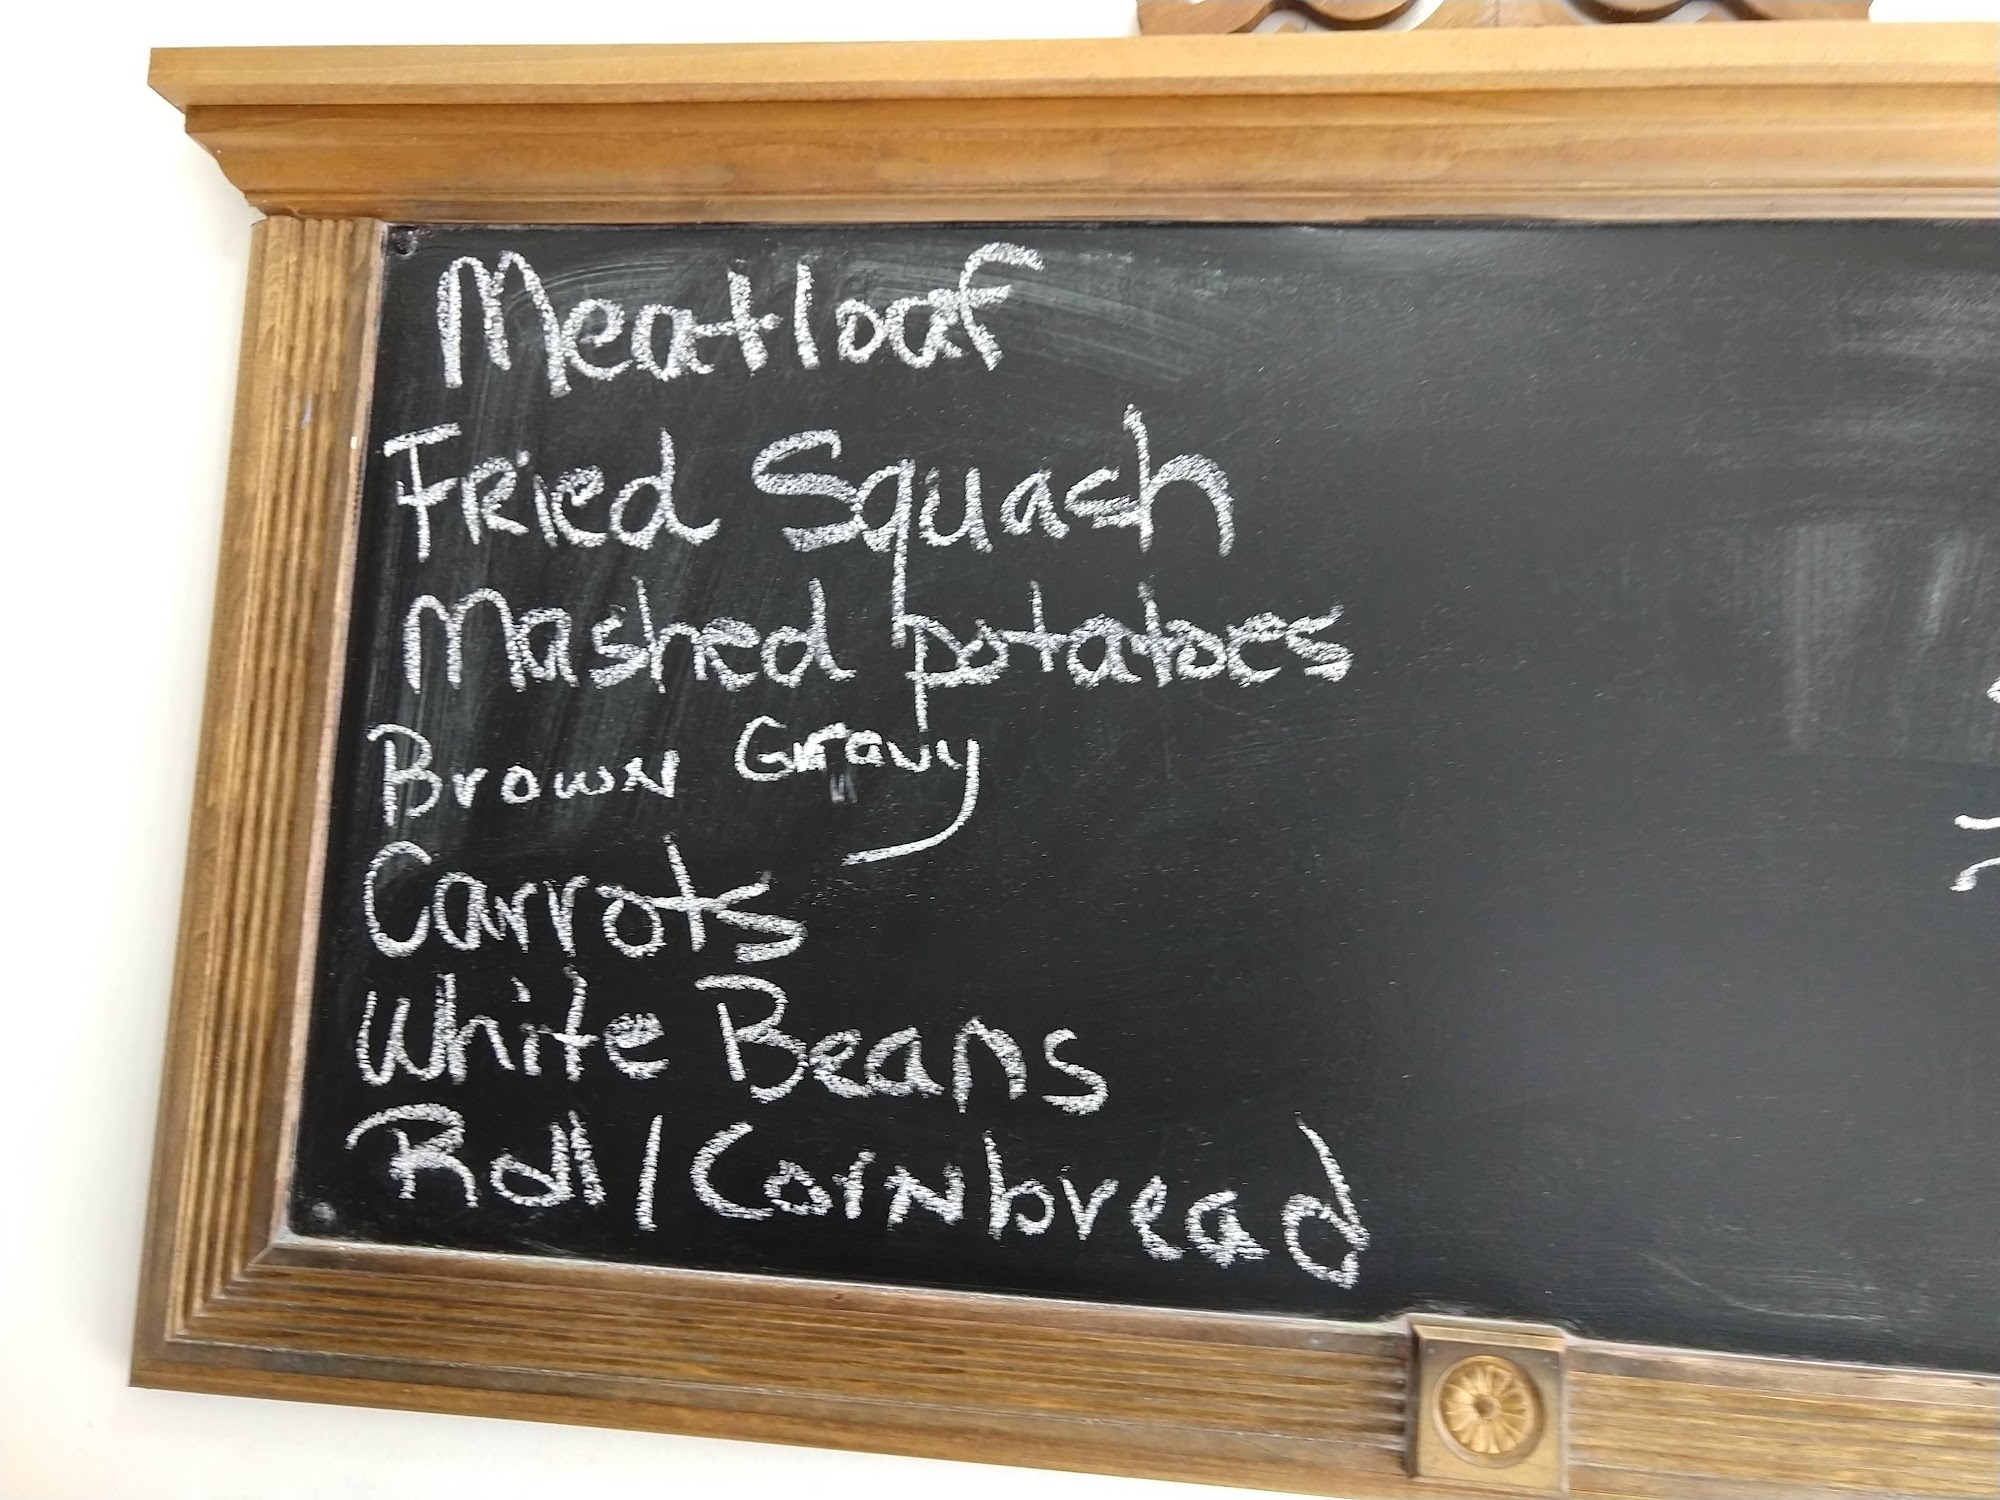 Meatloaf
Fried Squash
Mashed potatoes
Brown Gravy
Carrots
White Beans
Roll/Cornbread